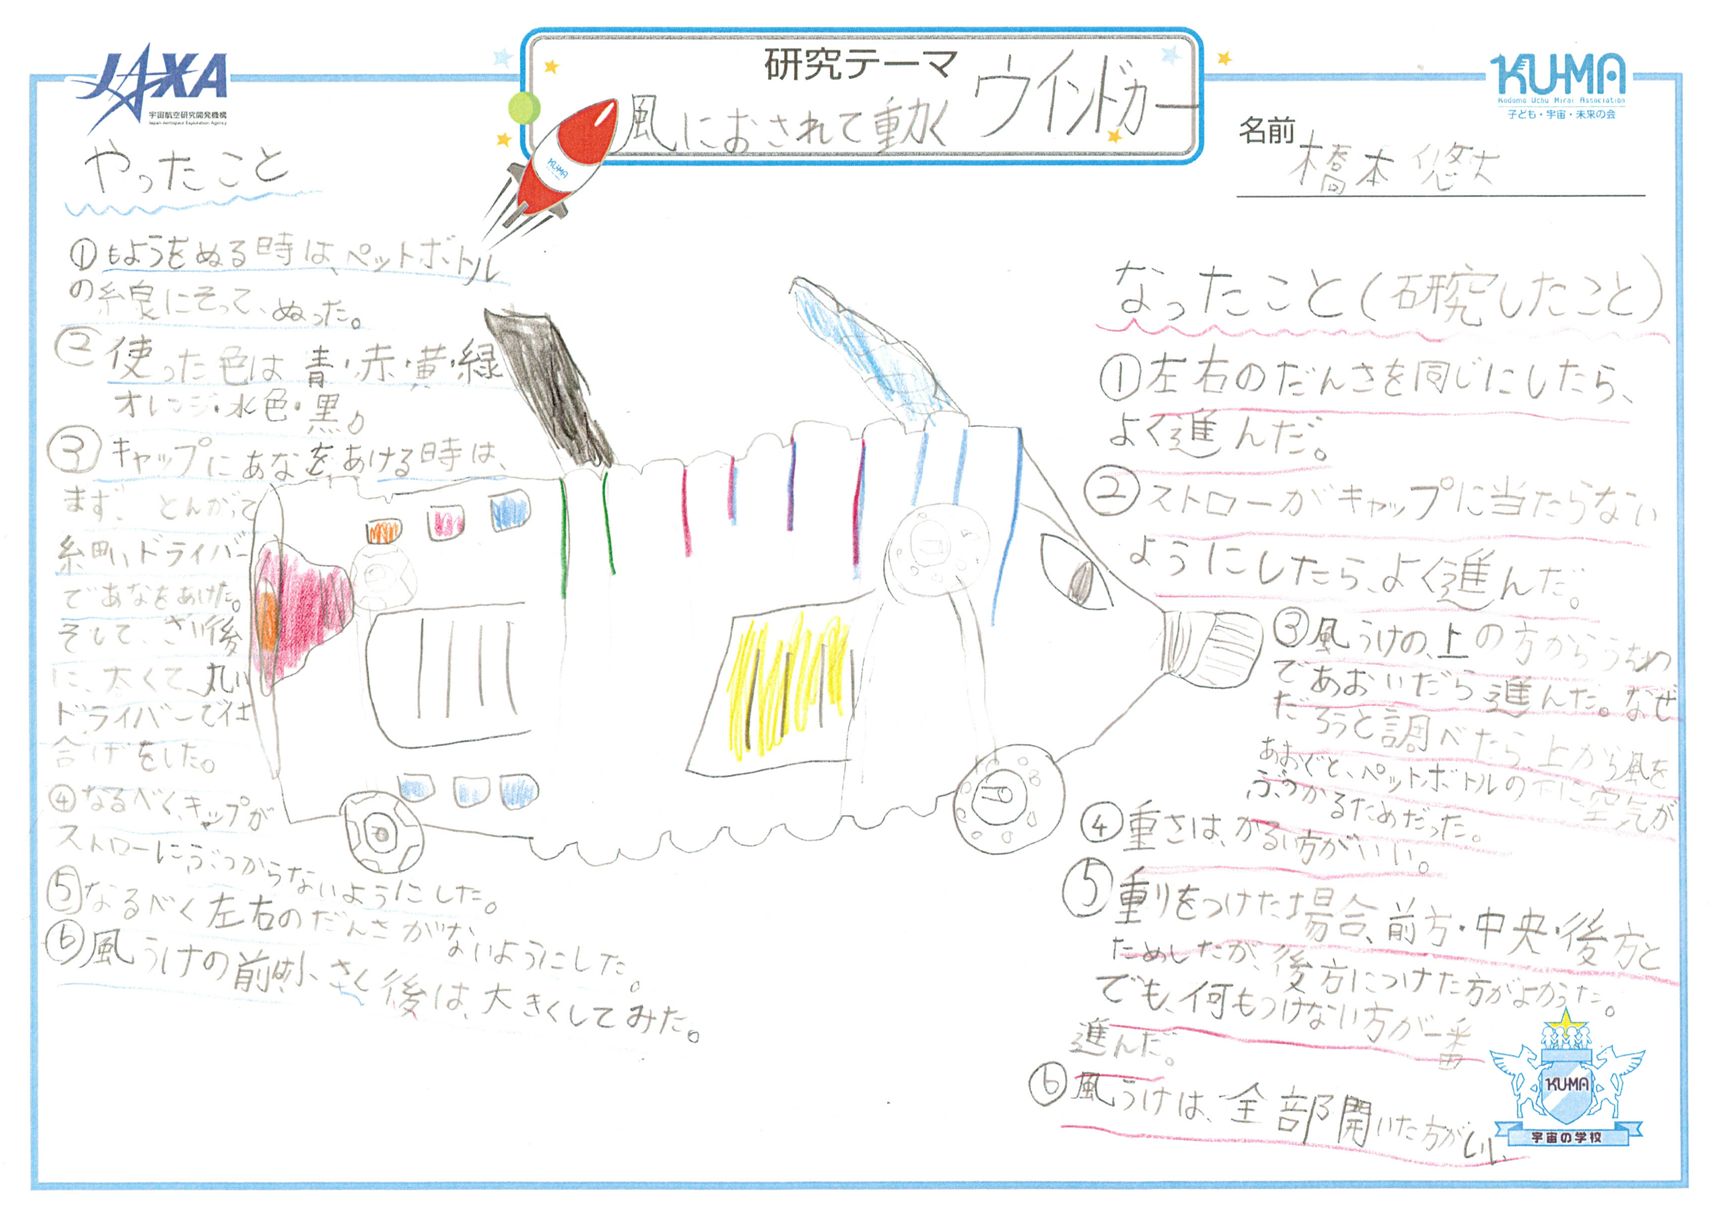 JAXA
宇宙航空研究開発機構
Japan Aerospace Exploration Agency
研究テーマ
風におされて動く ウインドカー
KUMA
KU-MA
Kodomo Uchu Mirai Association
子ども・宇宙・未来の会
名前
橋本 悠大
やったこと
①もようをぬる時は、ペットボトル
の線にそって、ぬった。
②使った色は青・赤・黄・緑
オレンジ・水色・黒。
③キャップにあなをあける時は、
まず、とんがて
細いドライバー
であなをあけた。
そして、さい後
に、太くて、丸い
ドライバーで仕
合げをした。
④なるべく、キャップが
ストローにぶつからないようにした。
⑤なるべく左右のだんさがないようにした。
⑥風うけの前は小さく後は、大きくしてみた。
なったこと(研究したこと)
①左右のだんさを同じにしたら、
よく進んだ。
②ストローがキャップに当たらない
ようにしたら、よく進んだ。
③風うけの、上の方からうちわ
であおいだら進んだ。なぜ
だろうと調べたら、上から風を
あおぐと、ペットボトルの下に空気が
ぶつかるためだった。
④重さは、かるい方がいい。
⑤重りをつけた場合、前方・中央・後方と
ためしたが、後方につけた方がよかった。
でも、何もつけない方が一番
進んだ。
⑥風うけは、全部開いた方がいい
KUMA
宇宙の学校